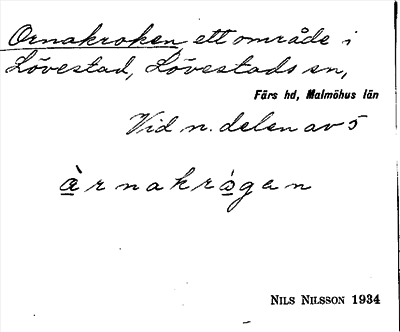 Ornakroken ett område i
Lövestad, Lövestads sn,
Färs hd, Malmöhus län
Vid n. delen av 5
àrnakrȧgan
NILS NILSSON 1934